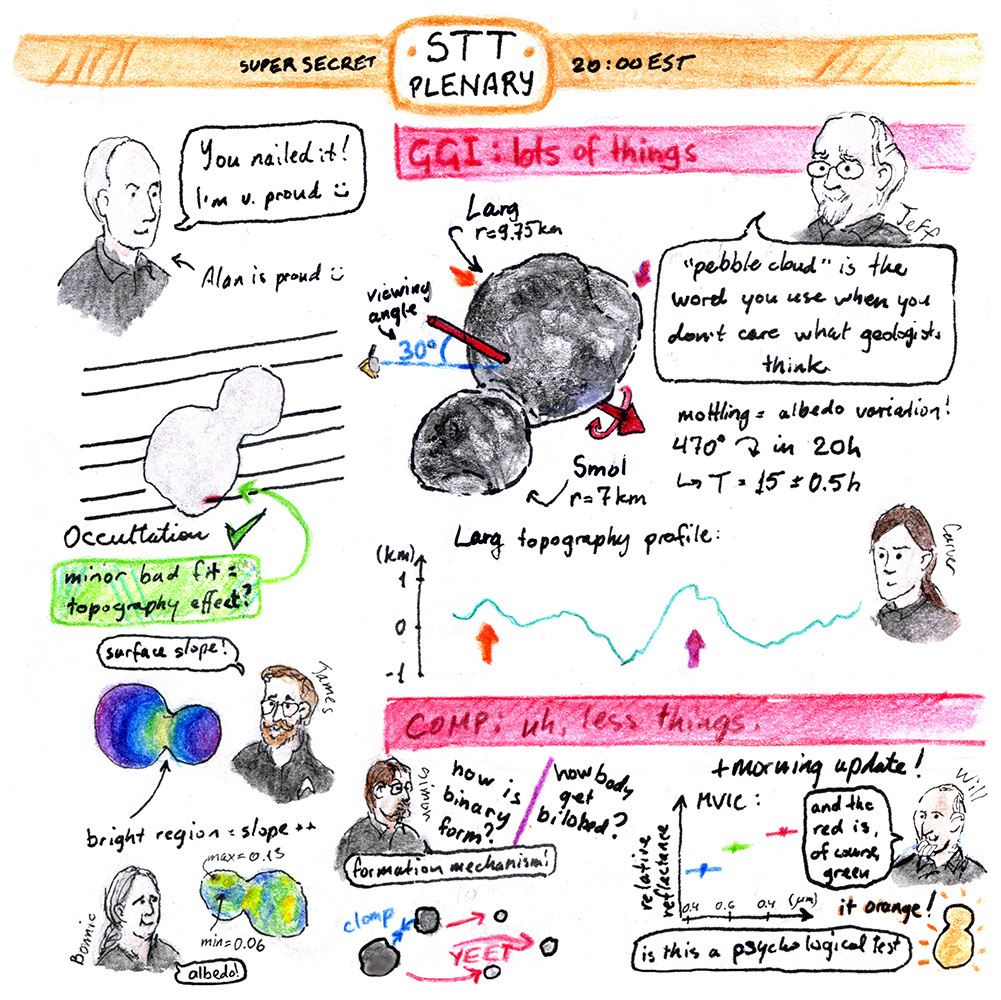 SUPER SECRET
STT
PLENARY
20:00 EST
You nailed it!
I'm v. proud :)
Alan is proud :)
GGI: lots of things
Jeff
"pebble cloud" is the
word you use when you
don't care what geologists
think
Larg
r=9.75km
viewing
angle
30°
Smol
r=7km
mottling = albedo variation!
470° ↷ in 20h
↳ T = 15 ± 0.5h
Occultation ✓
minor bad fit =
topography effect?
Larg topography profile:
(km)
1
0
-1
Carver
surface slope!
James
bright region = slope ++
max=0.15
min=0.06
Bonnie
albedo!
COMP: uh, less things.
Simon
how is
binary
form?
how body
get
bilobed?
formation mechanism!
clomp
YEET
+morning update!
MVIC:
relative
reflectance
0.4 0.6 0.4 (μm)
Will
and the
red is,
of course,
green
it orange!
is this a psychological test